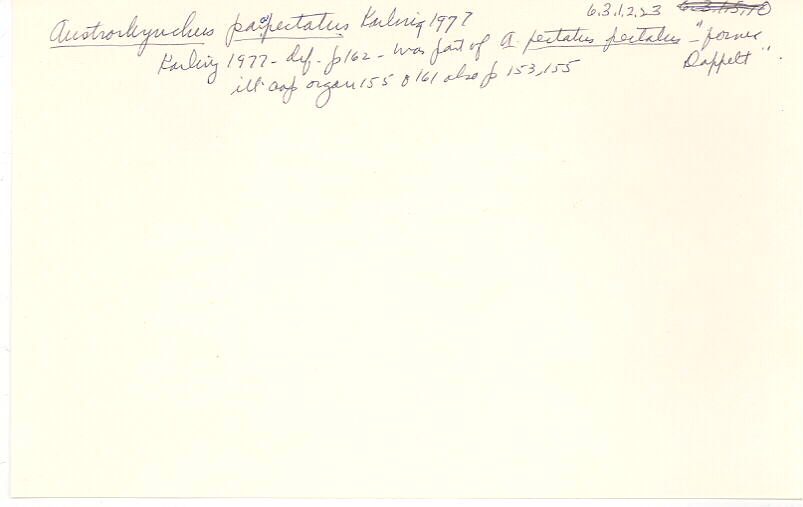 Austrorhynchus parapectatus Karling 1977 6.3.1.2.23
Karling 1977 - def. p 162 - was part of A. pectatus pectatus - "forma
ill. cop organ 155 & 161 also p 153, 155 Doppelt".